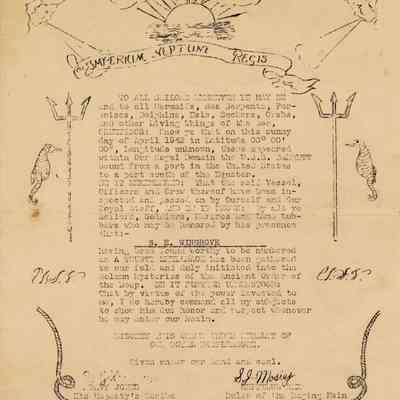 IMPERIUM NEPTUNI REGIS
TO ALL SAILORS WHEREVER YE MAY BE
and to all Mermaids, Sea Serpents, Por-
poises, Dolphins, Eels, Suckers, Crabs,
and other Living things of the Sea,
GREETINGS: Know ye that on this sunny
day of April 1942 in Latitude 00° 00'
00", Longitude unknown, there appeared
within Our Royal Domain the U.S.S.
bound from a port in the United States
to a port south of the Equator.
BE IT REMEMBERED: That the said Vessel,
Officers and Crew thereof have been in-
spected and passed on by Ourself and Our
Royal Staff, AND BE IT KNOWN: By all ye
Sailors, Soldiers, Marines and Land Lub-
bers who may be honored by his presence
that:-
S. E. WINGROVE
having been found worthy to be numbered
as A TRUSTY SHELLBACK has been gathered
to our fold and duly initiated into the
Solemn Mysteries of the Ancient Order of
the Deep. BE IT FURTHER UNDERSTOOD:
That by virtue of the power invested in
me, I do hereby command all my subjects
to show him due honor and respect wherever
he may enter our Realm.
DISOBEY THIS ORDER UNDER PENALTY OF
OUR ROYAL DISPLEASURE.
Given under our hand and seal.
DAVY JONES
His Majesty's Scribe
Ruler of the Raging Main